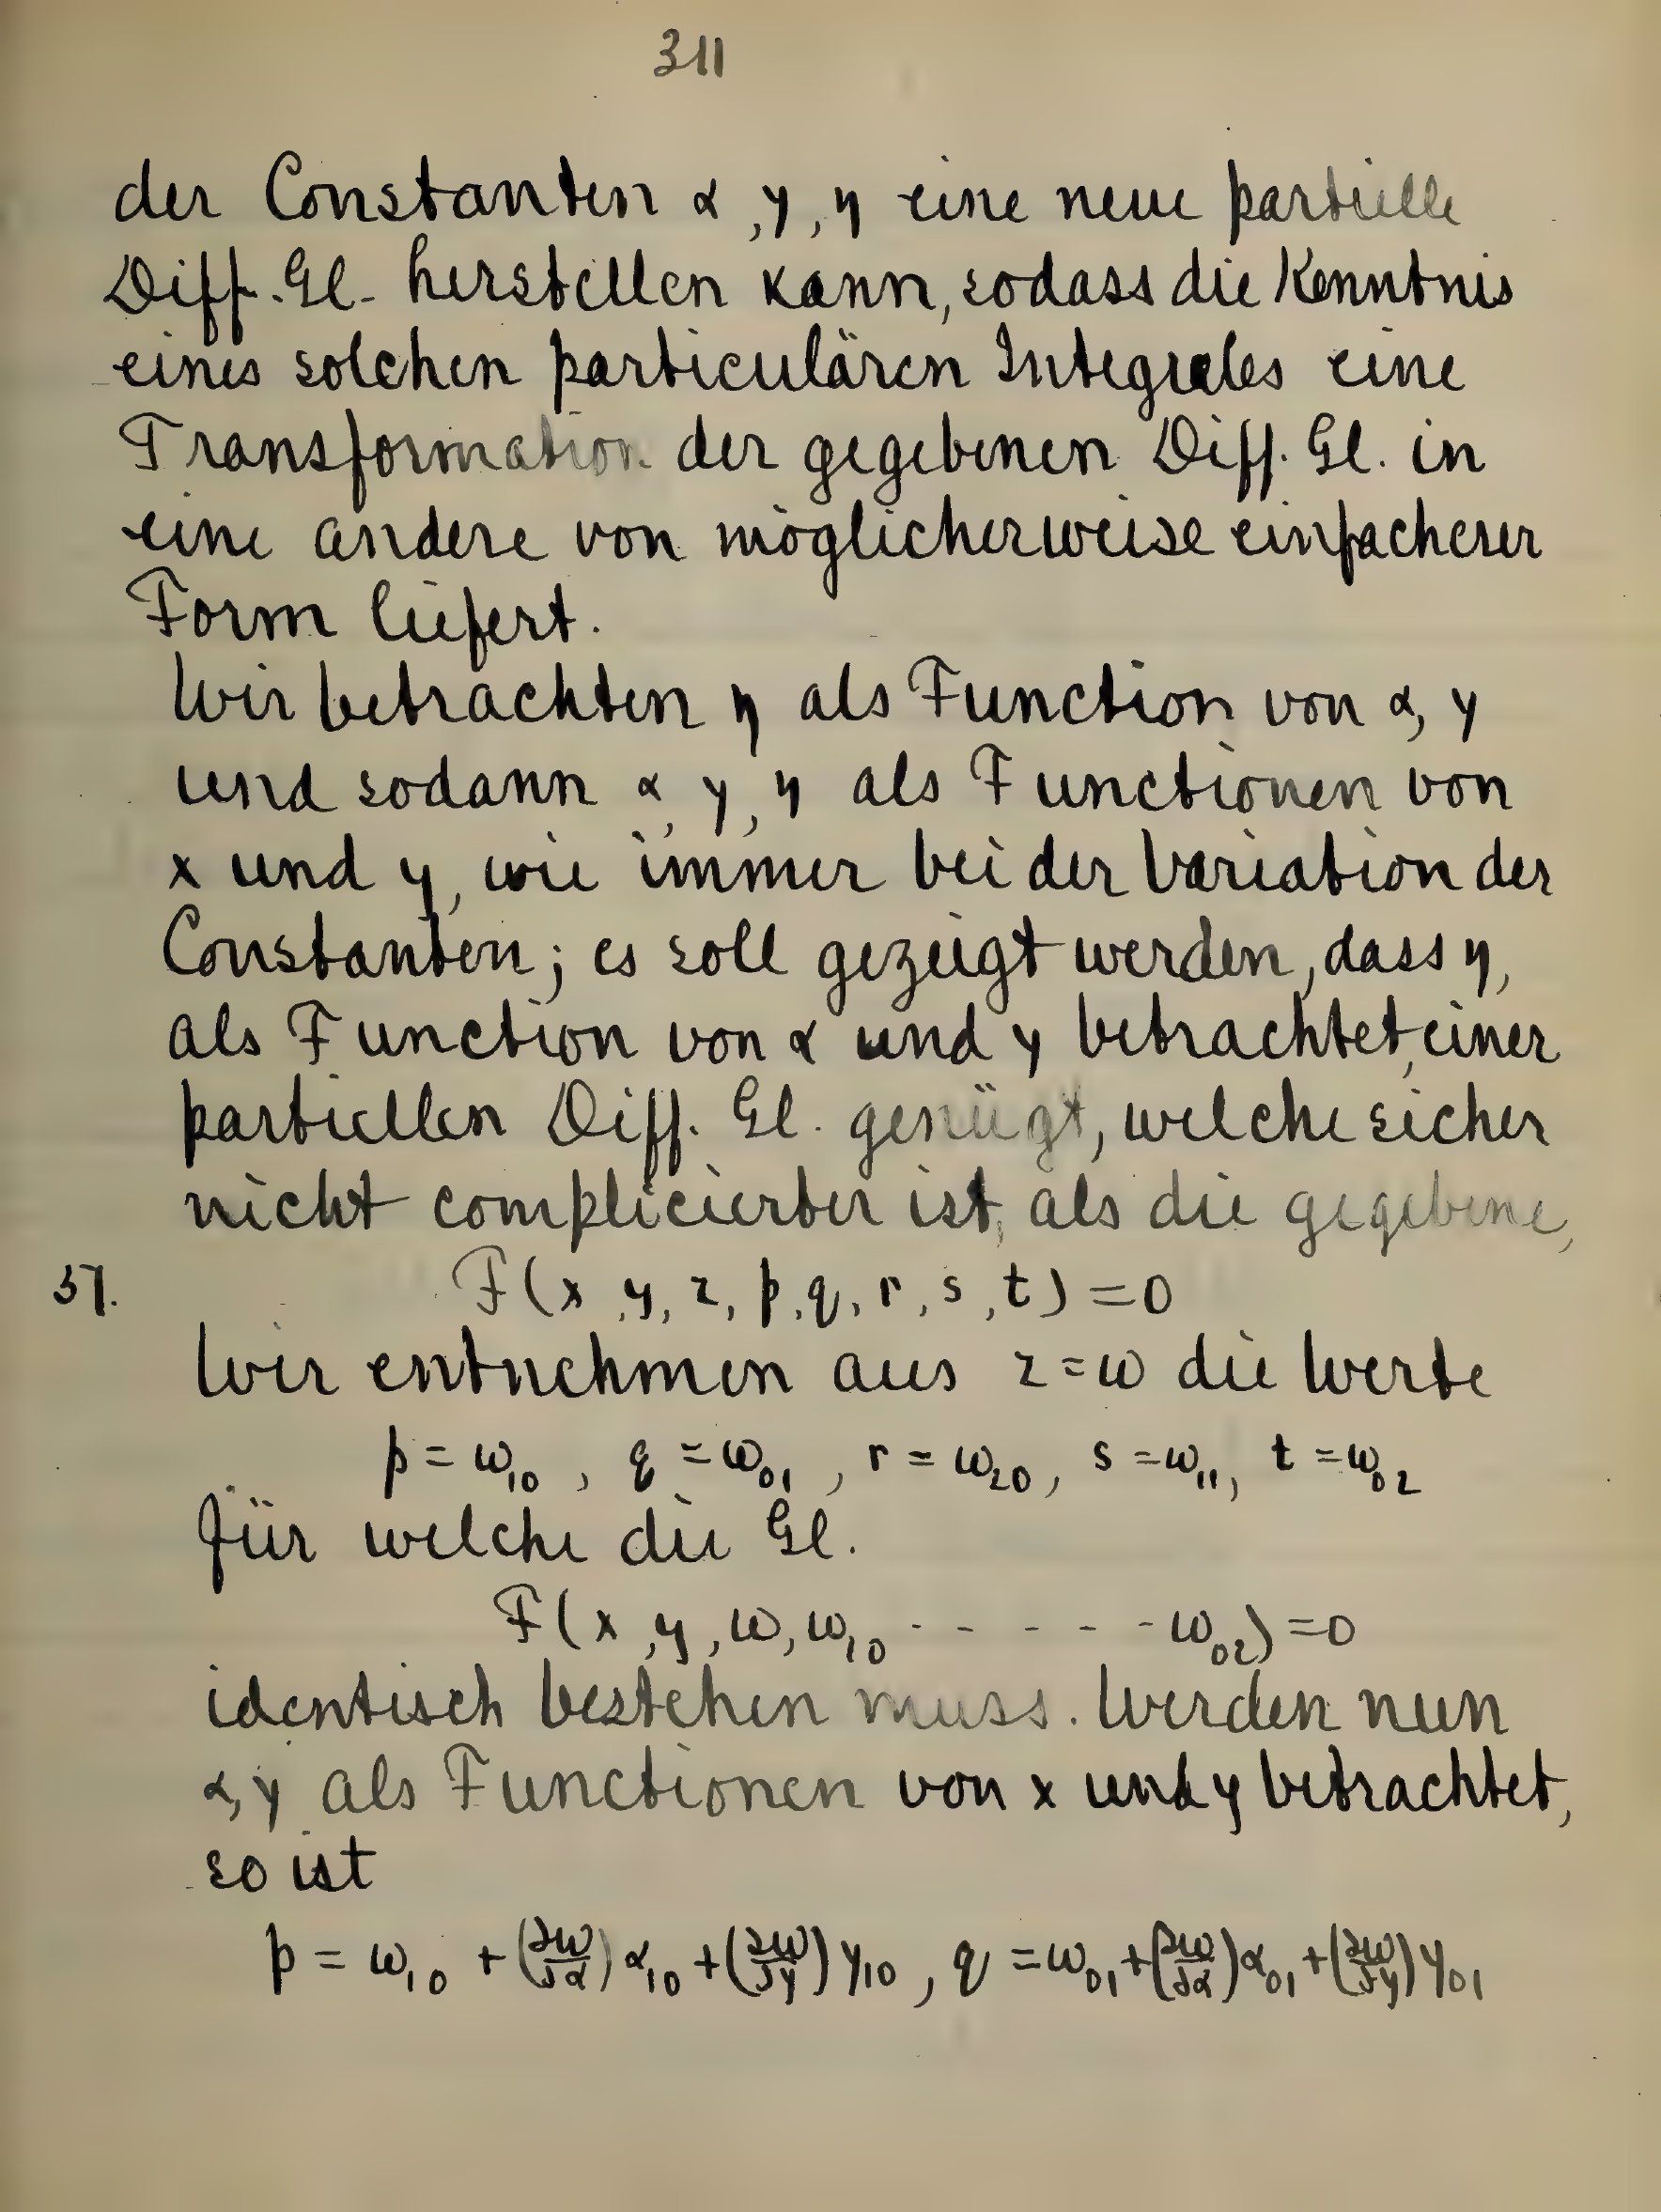 311
der Constanten α, γ, η eine neue partielle
Diff. Gl. herstellen kann, sodass die Kenntnis
eines solchen particulären Integrales eine
Transformation der gegebenen Diff. Gl. in
eine andere von möglicherweise einfacherer
Form liefert.
Wir betrachten η als Function von α, γ
und sodann α, γ, η als Functionen von
x und y, wie immer bei der Variation der
Constanten; es soll gezeigt werden, dass η,
als Function von α und γ betrachtet, einer
partiellen Diff. Gl. genügt, welche sicher
nicht complicierter ist, als die gegebene,
57. F(x, y, z, p, q, r, s, t) = 0
Wir entnehmen aus z = ω die Werte
p = ω₁₀, q = ω₀₁, r = ω₂₀, s = ω₁₁, t = ω₀₂
für welche die Gl.
F(x, y, ω, ω₁₀ - - - - - ω₀₂) = 0
identisch bestehen muss. Werden nun
α, γ als Functionen von x und y betrachtet,
so ist
p = ω₁₀ + (∂ω/∂α) α₁₀ + (∂ω/∂γ) γ₁₀, q = ω₀₁ + (∂ω/∂α) α₀₁ + (∂ω/∂γ) γ₀₁